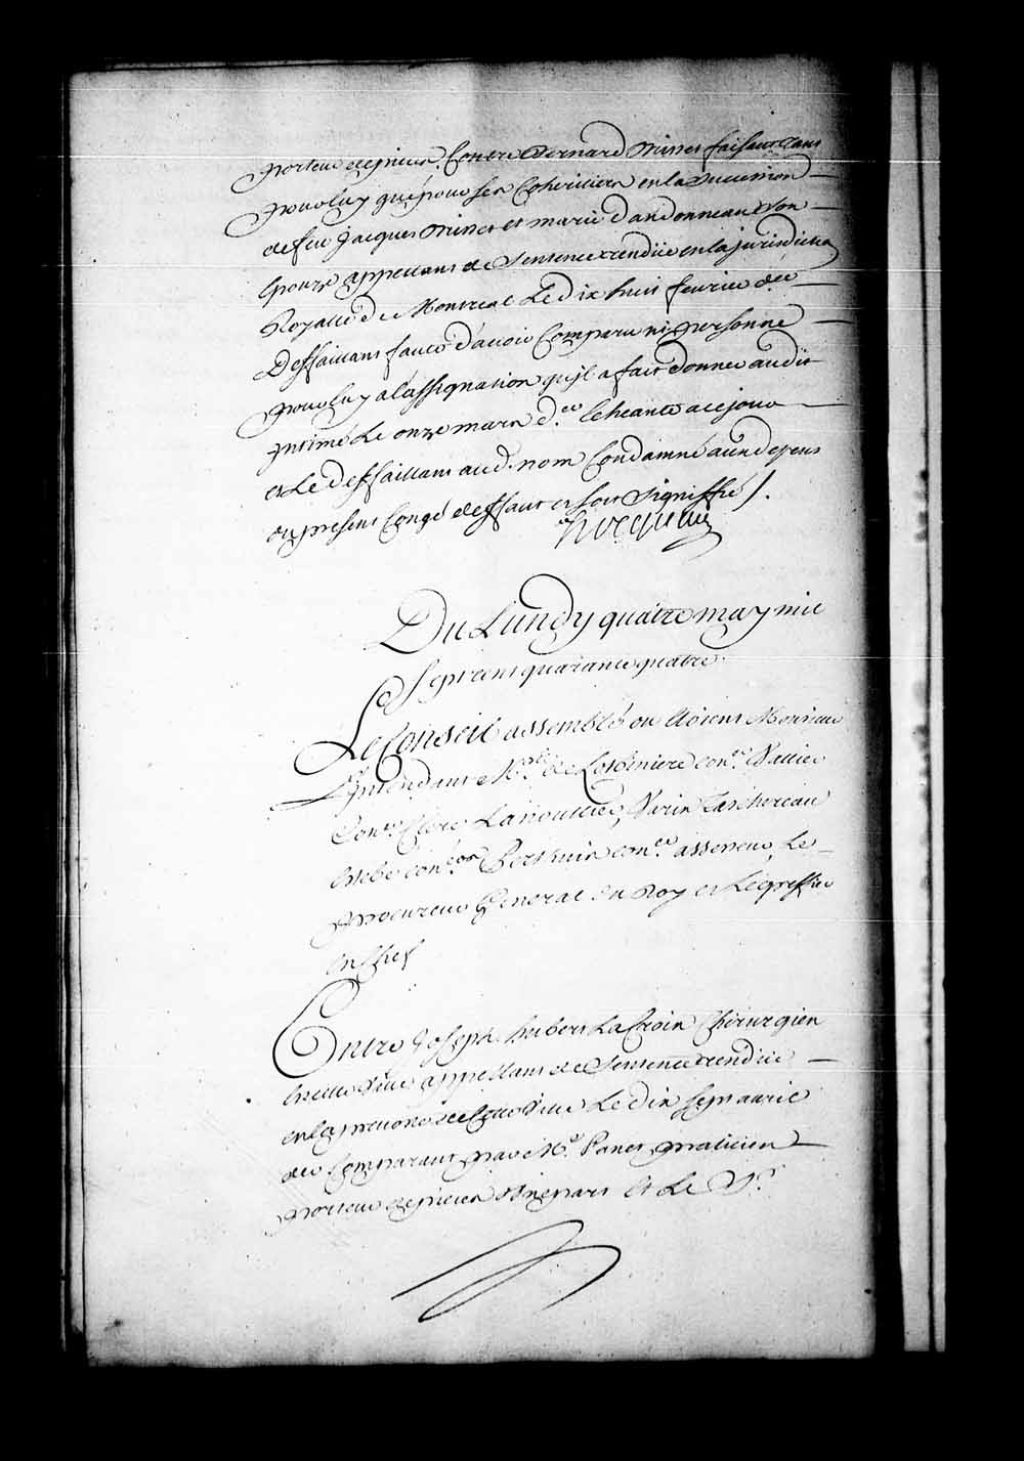 porteur de pieces Contre Bernard Minet faisant tant
pour luy que pour ses Coheritiers en la succession
de feu Jacques Minet et marie dandonneau son
Epouse appellans de Sentence rendüe en la jurisdiction
Royalle de Montreal Le dix huit fevrier der
Deffaillans faute d'avoir Comparu ni personne
pour luy a l'assignation qu'il a fait donner audit
intimé Le onze mars der. Echeante a ce jour
et Le Deffaillant aud. nom Condamné aux depens
du present Congé deffaut et soit signiffié /.
hocquart
Du Lundy quatre may mil
Sept cent quarante quatre
Le Conseil assemblé ou étoient Monsieur
L'intendant Mrs. de Lotbiniere conr. Vallier
Conr. Clerc Lanoullier, Varin Taschereau
Estebe conrs. Berthier conr. assesseur, Le
procureur General du Roy et Le greffier
en Chef
Entre Joseph hubert La Croix Chirurgien
en cette Ville appellant de Sentence rendüe
en la prevoté de Cette Ville Le dix sept avril
der Comparant par Me. Panet praticien
porteur de pieces d'une part Et Le Sr.